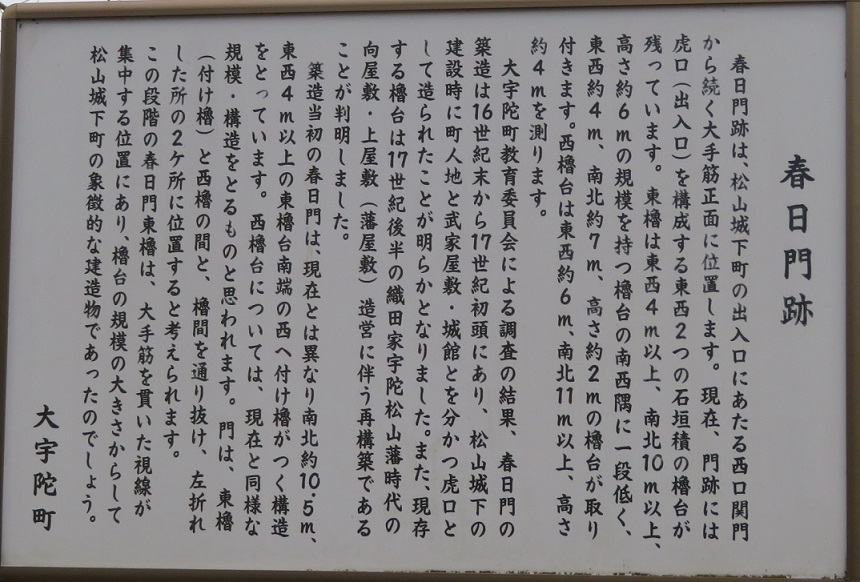 春日門跡
春日門跡は、松山城下町の出入口にあたる西口関門
から続く大手筋正面に位置します。現在、門跡には
虎口（出入口）を構成する東西2つの石垣積の櫓台が
残っています。東櫓は東西4m以上、南北10m以上、
高さ約6mの規模を持つ櫓台の南西隅に一段低く、
東西約4m、南北約7m、高さ約2mの櫓台が取り
付きます。西櫓台は東西約6m、南北11m以上、高さ
約4mを測ります。
大宇陀町教育委員会による調査の結果、春日門の
築造は16世紀末から17世紀初頭にあり、松山城下の
建設時に町人地と武家屋敷・城館とを分かつ虎口と
して造られたことが明らかとなりました。また、現存
する櫓台は17世紀後半の織田家宇陀松山藩時代の
向屋敷・上屋敷（藩屋敷）造営に伴う再構築である
ことが判明しました。
築造当初の春日門は、現在とは異なり南北約10.5m、
東西4m以上の東櫓台南端の西へ付け櫓がつく構造
をとっています。西櫓台については、現在と同様な
規模・構造をとるものと思われます。門は、東櫓
（付け櫓）と西櫓の間と、櫓間を通り抜け、左折れ
した所の2ケ所に位置すると考えられます。
この段階の春日門東櫓は、大手筋を貫いた視線が
集中する位置にあり、櫓台の規模の大きさからして
松山城下町の象徴的な建造物であったのでしょう。
大宇陀町